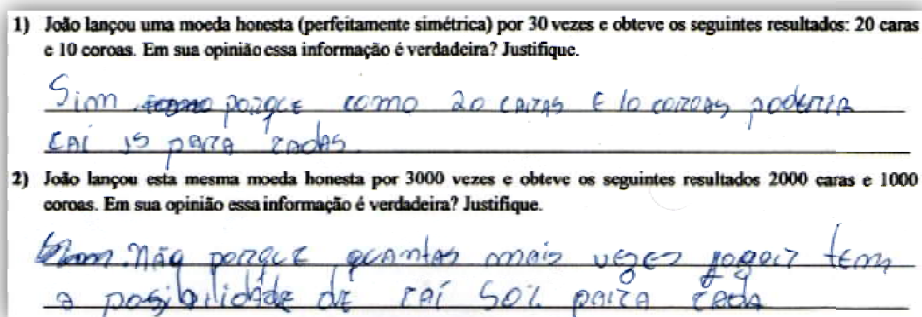 1) João lançou uma moeda honesta (perfeitamente simétrica) por 30 vezes e obteve os seguintes resultados: 20 caras
e 10 coroas. Em sua opinião essa informação é verdadeira? Justifique.
Sim porqce como 20 caras e 10 coroas poderia
caí 15 para cadas.
2) João lançou esta mesma moeda honesta por 3000 vezes e obteve os seguintes resultados 2000 caras e 1000
coroas. Em sua opinião essa informação é verdadeira? Justifique.
não porqce qcantas mais vezes jogair tem
a posibilidade de caí 50% paira cada